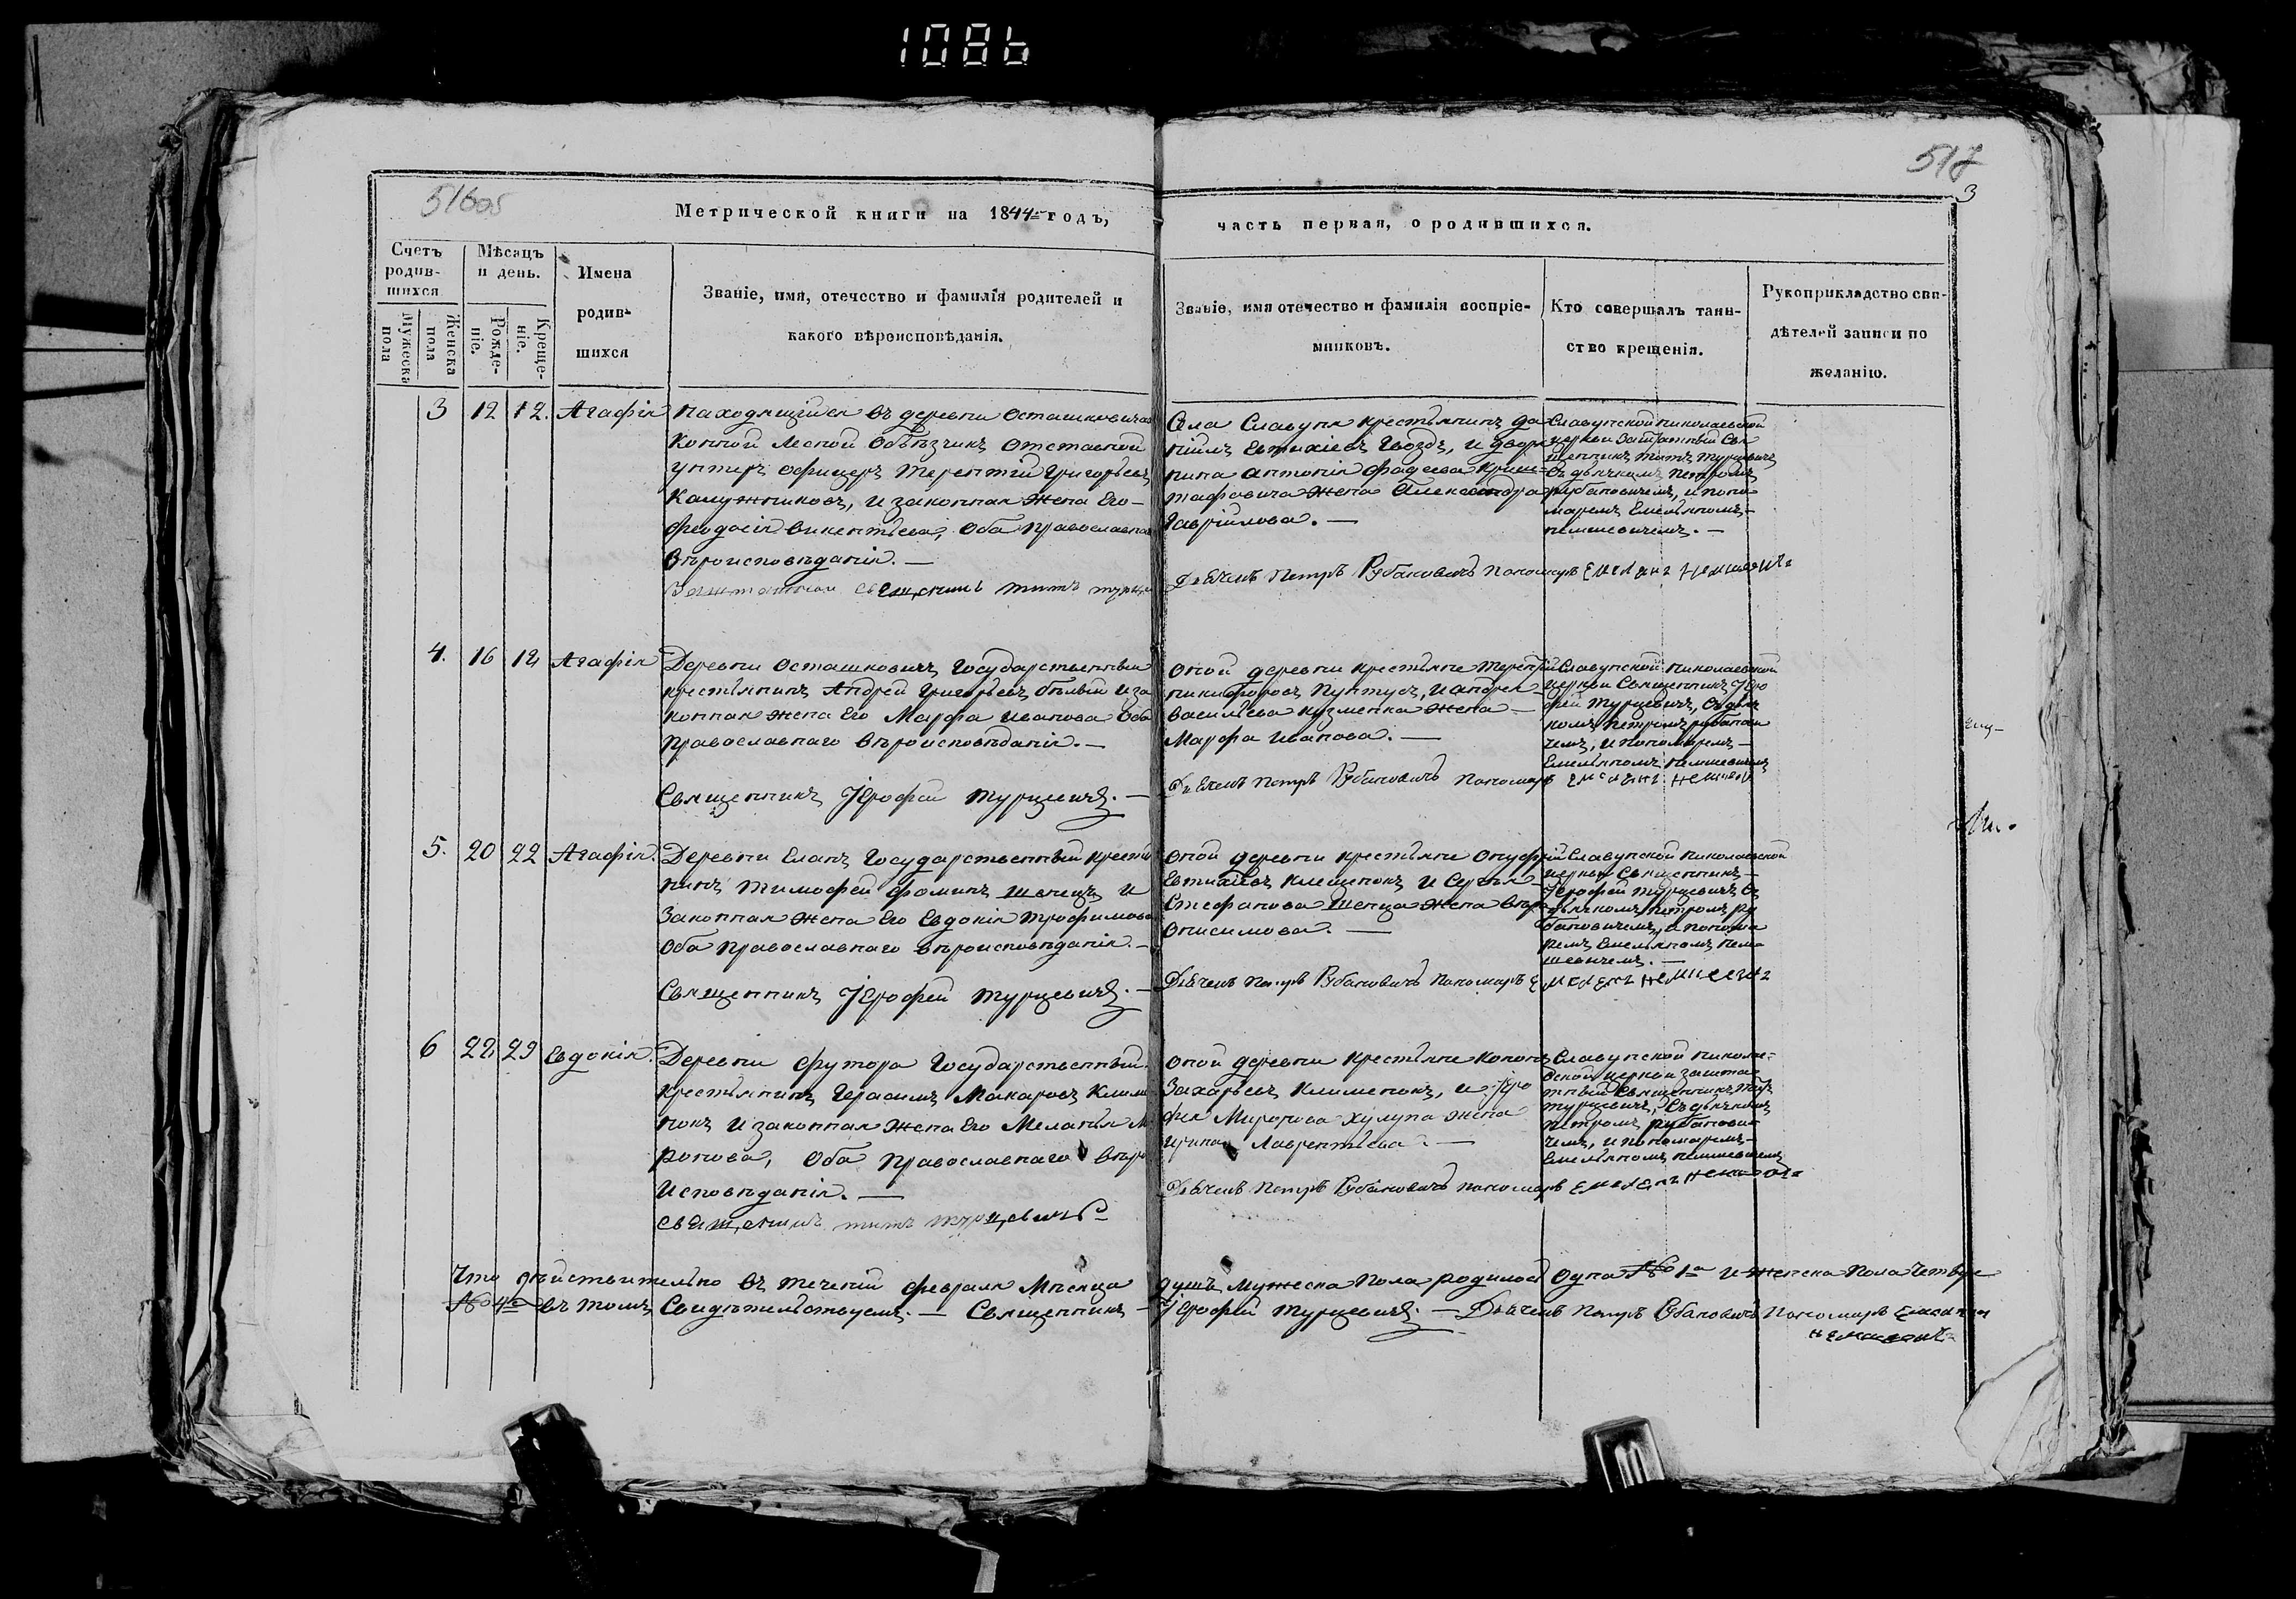 1086
516об
517
3
Метрической книги на 1844й годъ,
часть первая, о родившихся.
Счетъ родив-шихся
Мужеска пола
Женска пола
Мѣсяцъ и день.
Рожде-ніе.
Креще-ніе.
Имена
родив-
шихся
Званіе, имя, отечество и фамилія родителей и
какого вѣроисповѣданія.
Званіе, имя отечество и фамилія воспріе-
мниковъ.
Кто совершалъ таин-
ство крещенія.
Рукоприкладство сви-
дѣтелей записи по
желанію.
3 12 12. Агафія
Находящійся въ деревни Осташковичахъ
Конной Лесной Объѣзчикъ Отставной
Унтеръ Офицеръ Терентій Григорьевъ
Калужниковъ, и законная Жена Его
Феодосія Викентьева, Оба Православнаго
Вѣроисповѣданія. —
Заштатный священникъ титъ
Села Славуня крестьянинъ Да
ніилъ Евтихіевъ Гвоздь, и двора
нина Антонія Фадеева
Жена Александра
Гавріилова. —
Дьячекъ Петръ Рубановичъ Пономарь Емелянъ
Славунской Николаевской
церкви Заштатный Свя
щенникъ Титъ Турцевичъ
Съ дьячкомъ Петромъ
рубановичемъ, и поно
маремъ Емельяномъ
немшевичемъ. —
4. 16 Агафія
Деревни Осташковичъ Государственный
крестьянинъ Андрей Григорьевъ бѣлый и за
конная жена Его Марфа Иванова Оба
Православнаго Вѣроисповѣданія. —
Священникъ Іерофей Турцевичъ. —
Оной деревни крестьяне Терентій
никифоровъ Пунтусъ, и Андрея
Васильева кузменка жена —
Марфа Иванова. —
Дьячекъ Петръ Рубановичъ Пономарь Емелянъ
Славунской Николаевской
церкви Священникъ Іеро
фей Турцевичъ, Съ дьяч
комъ Петромъ рубанови
чемъ, и Пономаремъ —
Емельяномъ немшевичемъ
5. 20 22 Агафія.
Деревни Еланъ Государственный крестья
нинъ Тимофей Фоминъ Швецъ и
Законная жена Его Евдокія Трофимова
Оба Православнаго вѣроисповѣданія. —
Священникъ Іерофей Турцевичъ. —
Оной деревни крестьяне Онуфрій
Евтихіевъ Клещенокъ и Сергѣя
Стефанова Швеца жена
Онисимова. —
Дьячекъ Петръ Рубановичъ Пономарь
Славунской Николаевской
церкви Священникъ —
Іерофей Турцевичъ Съ
дьячкомъ Петромъ ру
бановичемъ, и понома
ремъ Емельяномъ нем
шевичемъ. —
6 22 29 Евдокія.
Деревни Футора Государственный
Крестьянинъ Герасимъ Макаровъ Климе
нокъ и законная жена Его Меланія Ми
ронова, Оба Православнаго вѣро
Исповѣданія. —
священникъ титъ турцевичъ
Оной деревни крестьяне Кононъ
Захарьевъ Клименокъ, и Іеро
фея Миронова Хулупа жена
Ирина Лаврентьева. —
Дьячекъ Петръ Рубановичъ пономарь
Славунской Николае-
вской церкви зашта
тный Священникъ Титъ
Турцевичъ, Съ дьячкомъ
Петромъ рубанови
чемъ, и пономаремъ —
Емельяномъ немшевичемъ
Что дѣйствительно въ теченіи февраля Мѣсяца душъ Мужеска Пола родилось Одна № 1а и Женска Пола Четыре
№ 4е въ томъ Свидѣтельствуемъ. — Священникъ — Іерофей Турцевичъ. — Дьячекъ Петръ Рубановичъ Пономарь